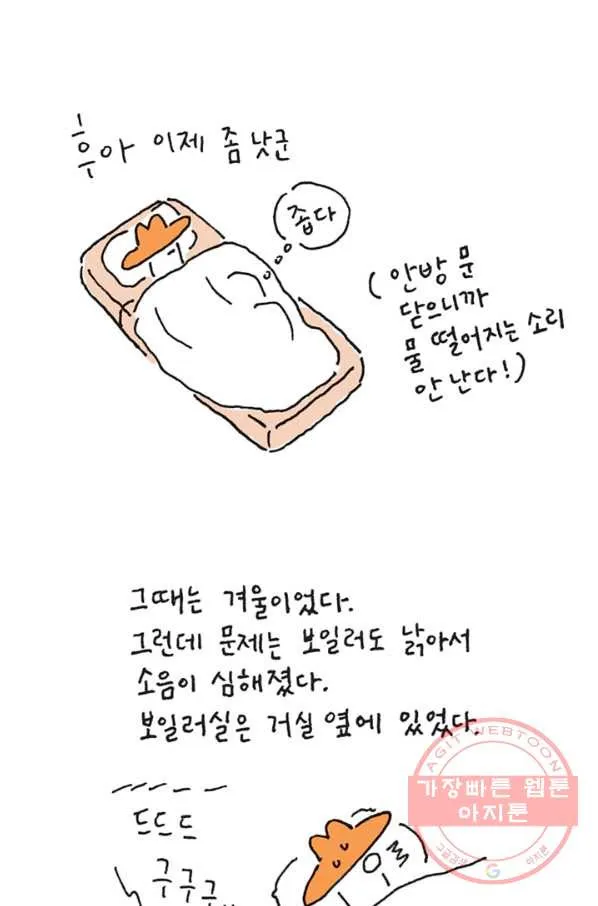 후아 이제 좀 낫군
좁다
(안방 문
닫으니까
물 떨어지는 소리
안 난다!)
그때는 겨울이었다.
그런데 문제는 보일러도 낡아서
소음이 심해졌다.
보일러실은 거실 옆에 있었다.
AGIT WEBTOON
가장빠른 웹툰
아지툰
구글검색
G
아지툰
드드드
구구구..
으